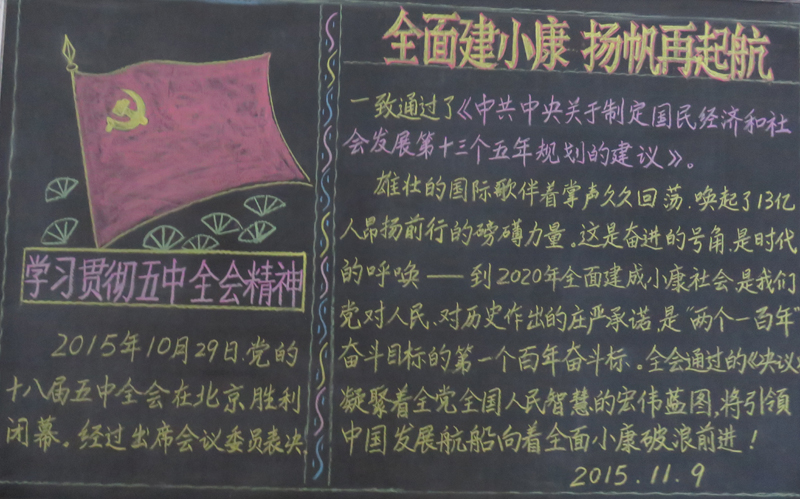 学习贯彻五中全会精神
2015年10月29日,党的
十八届五中全会在北京胜利
闭幕。经过出席会议委员表决,
全面建小康 扬帆再起航
一致通过了《中共中央关于制定国民经济和社
会发展第十三个五年规划的建议》。
雄壮的国际歌伴着掌声久久回荡,唤起了13亿
人昂扬前行的磅礴力量。这是奋进的号角,是时代
的呼唤——到2020年全面建成小康社会,是我们
党对人民、对历史作出的庄严承诺,是"两个一百年"
奋斗目标的第一个百年奋斗标。全会通过的《决议》
凝聚着全党全国人民智慧的宏伟蓝图,将引领
中国发展航船向着全面小康破浪前进!
2015.11.9